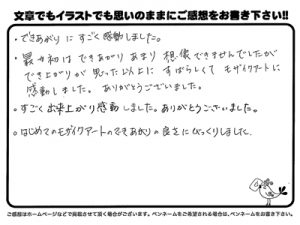 文章でもイラストでも思いのままにご感想をお書き下さい!!
・できあがりに すごく感動しました。
最初は できあがり あまり 想像できませんでしたが
でき上がりが 思った以上に すばらしくて モザイクアートに
感動しました。 ありがとうございました。
・すごく 出来上がり感動しました。ありがとうございました。
・はじめてのモザイクアートのできあがりの良さにびっくりしました。
ご感想はホームページなどで掲載させて頂く場合がございます。ペンネームをご希望される場合は、ペンネームをお書き下さい。